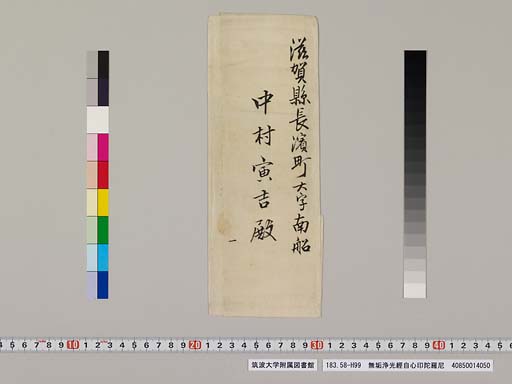 滋賀縣長濱町大字南船
中村寅吉殿
筑波大学附属図書館
183.58-H99 無垢浄光經自心印陀羅尼 40850014050